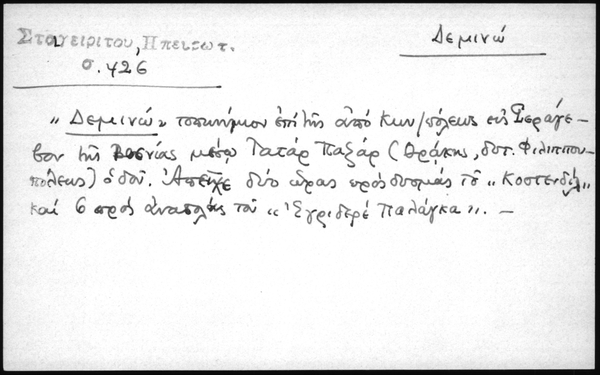 Σταγειρίτου, Ηπειρωτ.
Δεμινώ
σ. 426
"Δεμινώ" τοπωνύμιον επί της από Κων/πόλεως εις Σεράγε-
βον της Βοσνίας μέσω Τατάρ Παζάρ (Θράκης, δυτ. Φιλιππου-
πόλεως) οδού. Απείχε δύο ώρας προς δυσμάς του "Κοστενδίλ"
και 6 προς ανατολάς του "Εγριδερέ Παλάγκα". -